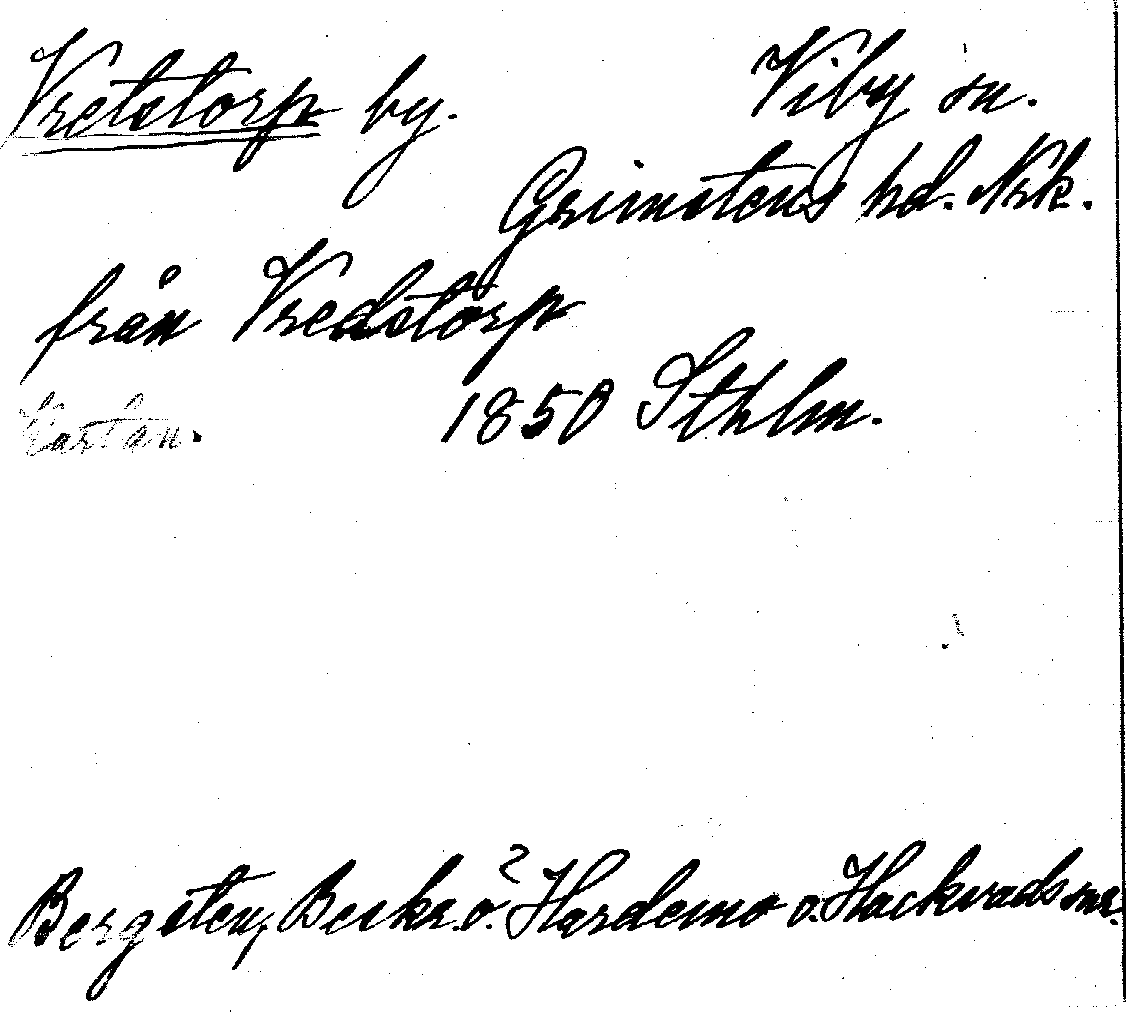 Vretstorp by. Viby sn.
Grimstens hd. Nrk.
från Vredstorp
Kartan. 1850 Sthlm.
Bergsten, Beskr. ö. Hardemo o. Hackvads snr.